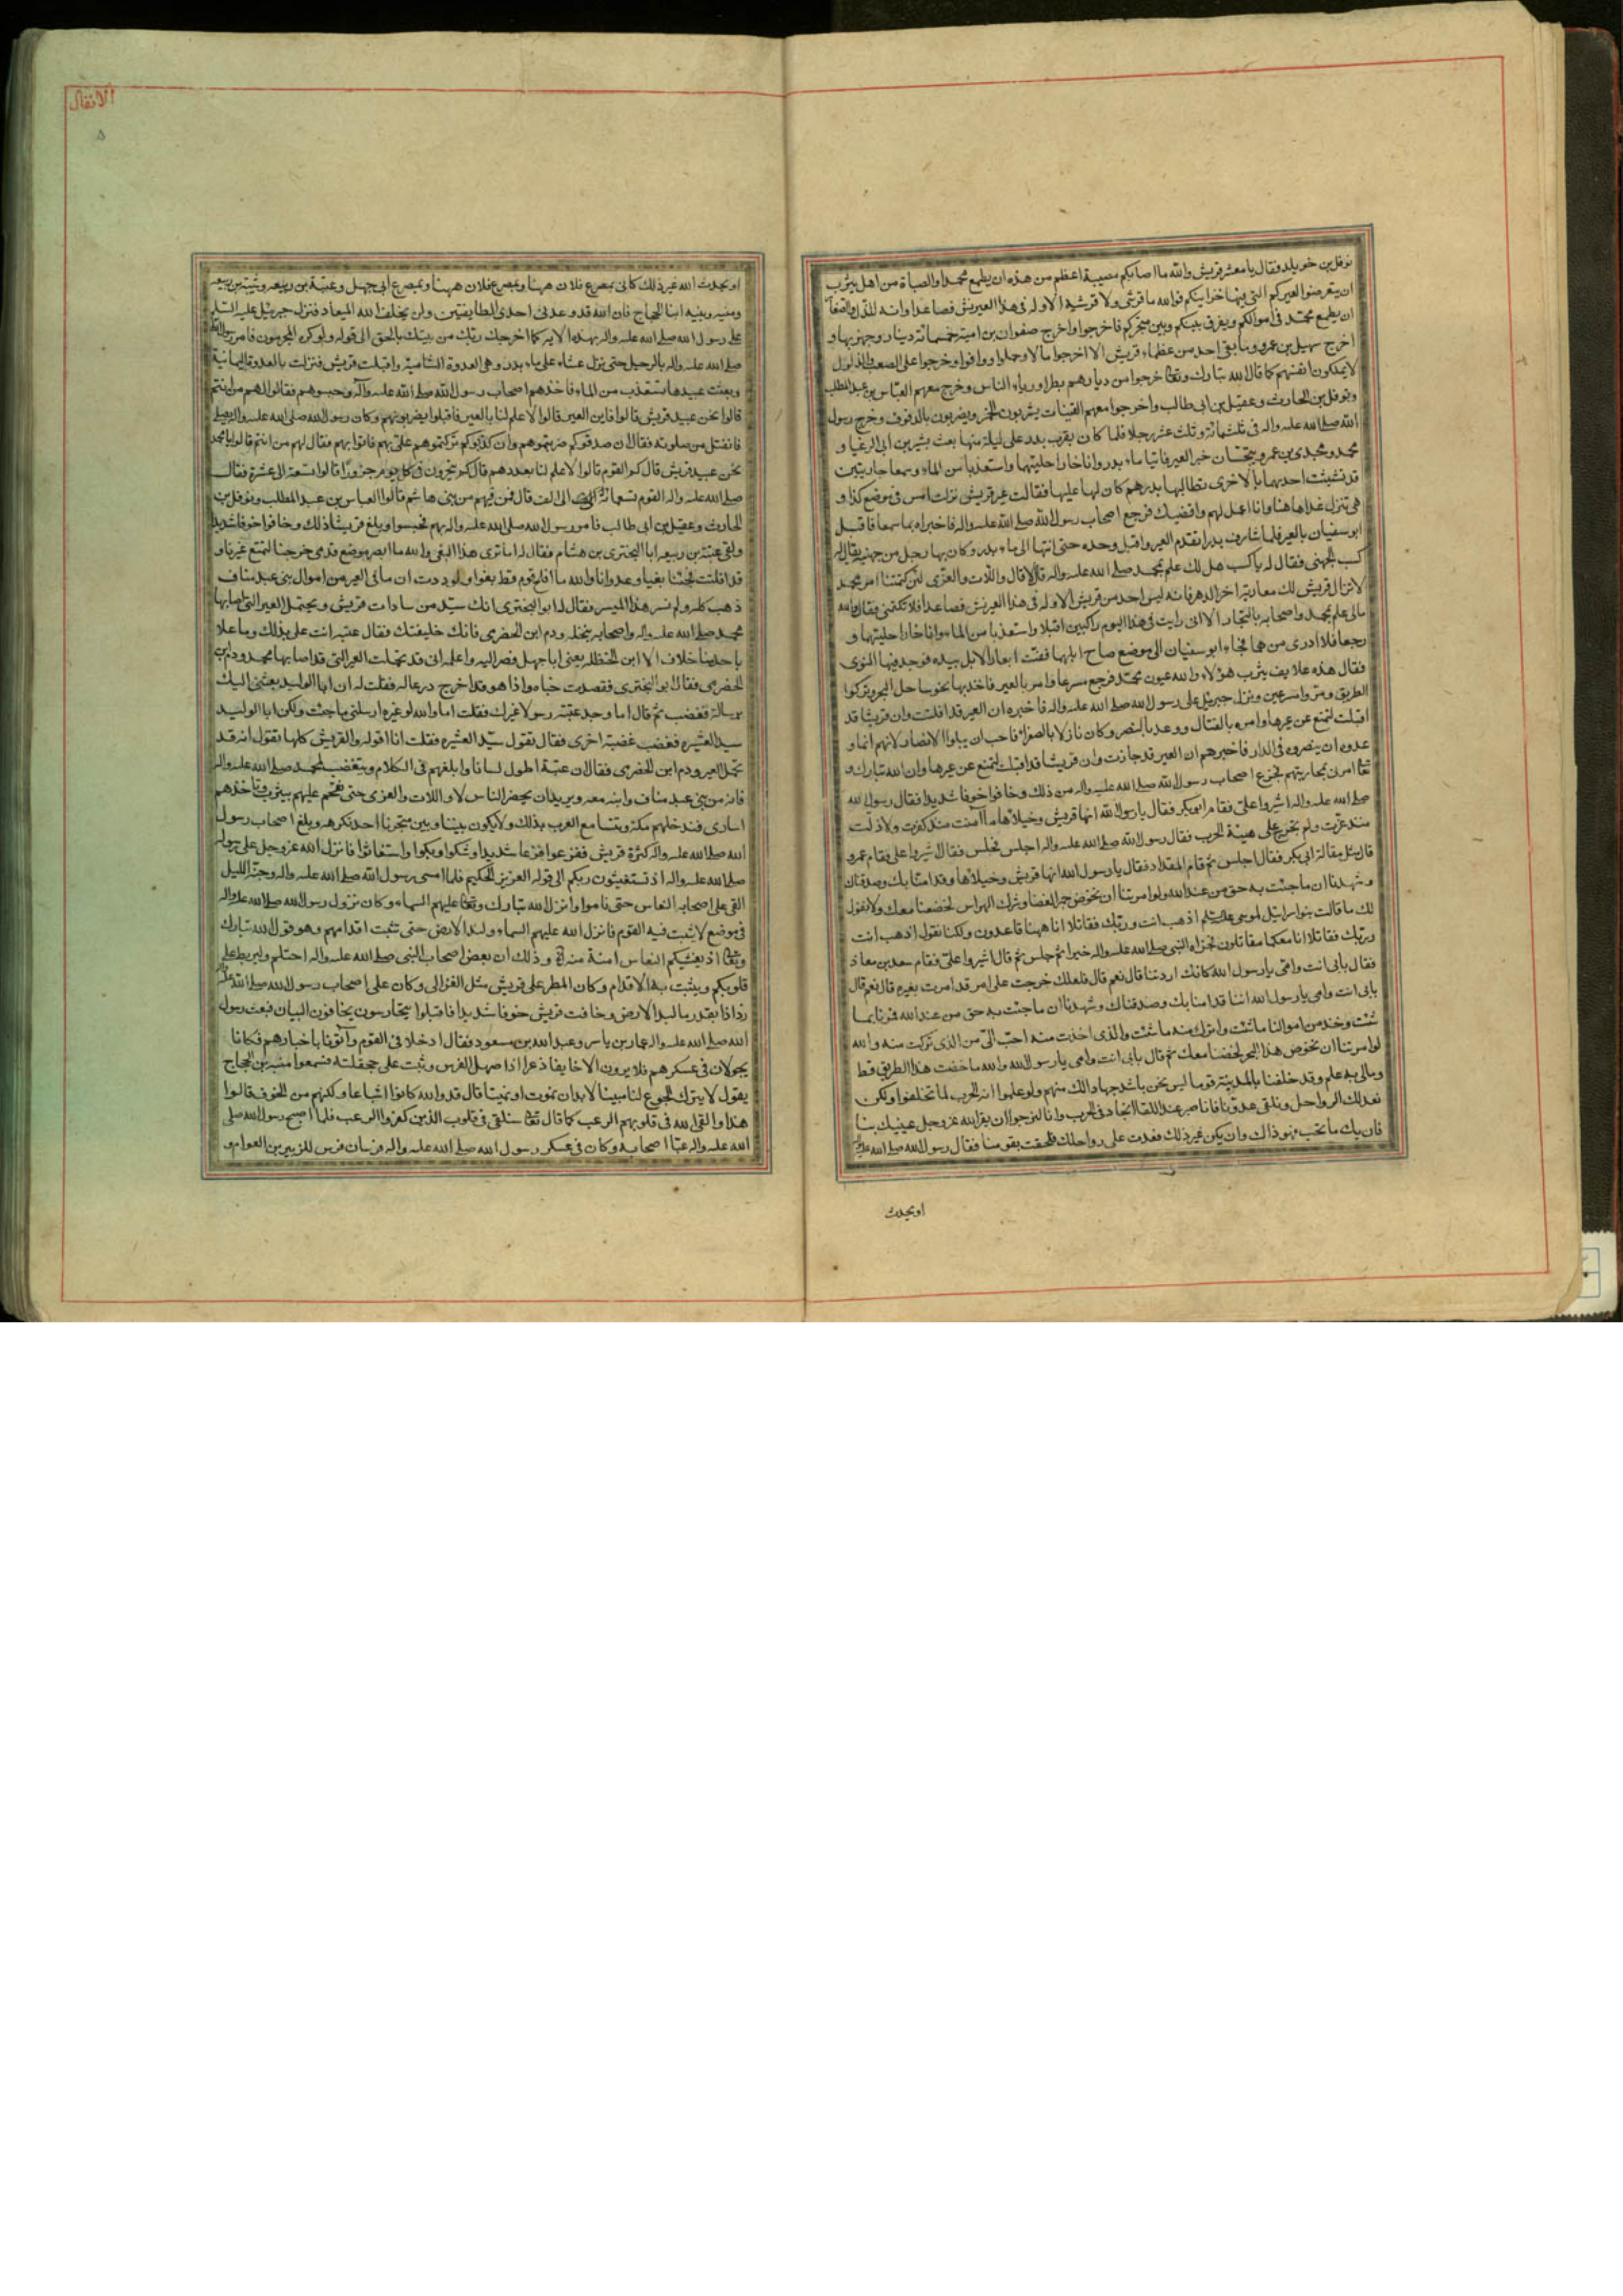 نوفل بن خويلد فقال يا معشر قريش والله ما اصابكم مصيبة اعظم من هذه ان يطمع محمد والصباة من اهل يثرب
ان يتعرضوا لعيركم التي فيها خزاينكم فوالله ما قرشي ولا قرشية الا وله في هذا العير نش فصاعدا وانه الذل والصغار
ان يطمع محمد في اموالكم ويفرق بينكم وبين متجركم فاخرجوا واخرج صفوان بن امية خمسمائة دينار وجهز بها و
اخرج سهيل بن عمرو وما بقي احد من عظماء قريش الا اخرجوا مالا وحملوا ووافوا وخرجوا على الصعب والذلول
لا يملكون انفسهم كما قال الله تبارك وتعالى خرجوا من ديارهم بطرا ورياء الناس وخرج معهم العباس بن عبد المطلب
ونوفل بن الحارث وعقيل بن ابي طالب واخرجوا معهم القينات يشربون الخمر ويضربون بالدفوف وخرج رسول
الله صلى الله عليه واله في ثلثمائة وثلث عشر رجلا فلما كان بقرب بدر على ليلة منها بعث بشير بن ابي الرغبا و
محمد ومجدي بن عمرو يتجسسان خبر العير فاتيا ماء بدر واناخا راحلتيهما واستعذبا من الماء وسمعا جاريتين
قد تشبثت احديهما بالاخرى تطالبها بدرهم كان لها عليها فقالت عير قريش نزلت امس في موضع كذا و
هي تنزل غدا هاهنا وانا اعمل لهم واقضيك فرجع اصحاب رسول الله صلى الله عليه واله فاخبراه بما سمعا فاقبل
ابو سفيان بالعير فلما شارف بدرا تقدم العير واقبل وحده حتى انتهى الى ماء بدر وكان بها رجل من جهينة يقال له
كسب الجهني فقال له يا كسب هل لك علم بمحمد صلى الله عليه واله قال لا قال واللات والعزى لئن كتمتنا امر محمد
لا تزال قريش لك معادية اخر الدهر فانه ليس احد من قريش الا وله في هذا العير نش فصاعدا فلا تكتمني فقال والله
مالي علم بمحمد واصحابه بالتجار الا اني رايت في هذا اليوم راكبين اقبلا واستعذبا من الماء واناخا راحلتيهما و
رجعا فلا ادري من هما فجاء ابو سفيان الى موضع مناخ ابلهما ففت ابعار الابل بيده فوجد فيها النوى
فقال هذه علايف يثرب هؤلاء والله عيون محمد فرجع مسرعا وامر بالعير فاخذ بها نحو ساحل البحر وتركوا
الطريق ومروا مسرعين ونزل جبرئيل على رسول الله صلى الله عليه واله فاخبره ان العير قد افلتت وان قريشا قد
اقبلت لتمنع عن عيرها وامره بالقتال ووعده النصر وكان نازلا بالصفراء فاحب ان يبلو الانصار لانهم انما و
عدوه ان ينصروه في الدار فاخبرهم ان العير قد جازت وان قريشا قد اقبلت لتمنع عن عيرها وان الله تبارك و
تعالى امرني بمحاربتهم فجزع اصحاب رسول الله صلى الله عليه واله من ذلك وخافوا خوفا شديدا فقال رسول الله
صلى الله عليه واله اشيروا علي فقام ابو بكر فقال يا رسول الله انها قريش وخيلاؤها ما آمنت منذ كفرت ولا ذلت
منذ عزت ولم تخرج على هيئة الحرب فقال رسول الله صلى الله عليه واله اجلس فجلس فقال اشيروا علي فقام عمر و
قال مثل مقالة ابي بكر فقال اجلس ثم قام المقداد فقال يا رسول الله انها قريش وخيلاؤها وقد امنا بك وصدقناك
وشهدنا ان ما جئت به حق من عند الله ولو امرتنا ان نخوض جمر الغضا وشوك الهراس لخضنا معك ولا نقول
لك ما قالت بنو اسرائيل لموسى عليه السلم اذهب انت وربك فقاتلا انا ههنا قاعدون ولكنا نقول اذهب انت
وربك فقاتلا انا معكما مقاتلون فجزاه النبي صلى الله عليه واله خيرا ثم جلس ثم قال اشيروا علي فقام سعد بن معاذ
فقال بابي انت وامي يا رسول الله كانك اردتنا قال نعم قال فلعلك خرجت على امر قد امرت بغيره قال نعم قال
بابي انت وامي يا رسول الله اننا قد امنا بك وصدقناك وشهدنا ان ما جئت به حق من عند الله فمرنا بما
شئت وخذ من اموالنا ما شئت واترك منه ما شئت والذي اخذت منه احب الي من الذي تركت منه والله
لو امرتنا ان نخوض هذا البحر لخضنا معك ثم قال بابي انت وامي يا رسول الله والله ما خضت هذا الطريق قط
ومالي به علم وقد خلفنا بالمدينة قوما ليس نحن باشد جهادا لك منهم ولو علموا انه الحرب لما تخلفوا ولكن
نعد لك الرواحل ونلقى عدونا فانا صبر عند اللقا انجاد في الحرب وانا لنرجو ان يقر الله عز وجل عينيك بنا
فان يك ما تحب فهو ذاك وان يكن غير ذلك فعدت على رواحلك فلحقت بقومنا فقال رسول الله صلى الله عليه واله
او يحدث
الانفال
٥
او يحدث الله غير ذلك كاني بمصرع فلان ههنا وبمصرع فلان ههنا وبمصرع ابي جهل وعتبة بن ربيعة وشيبة بن ربيعة
ومنبه ونبيه ابنا الحجاج فان الله قد وعدني احدى الطايفتين ولن يخلف الله الميعاد فنزل جبرئيل عليه السلم
على رسول الله صلى الله عليه واله بهذه الاية كما اخرجك ربك من بيتك بالحق الى قوله ولو كره المجرمون فامر رسول الله
صلى الله عليه واله بالرحيل حتى نزل عشاء على ماء بدر وهي العدوة الشامية واقبلت قريش فنزلت بالعدوة اليمانية
وبعثت عبيدها تستعذب من الماء فاخذهم اصحاب رسول الله صلى الله عليه وآله وحبسوهم فقالوا لهم من انتم
قالوا نحن عبيد قريش قالوا فاين العير قالوا لا علم لنا بالعير فاقبلوا يضربونهم وكان رسول الله صلى الله عليه واله يصلي
فانفتل من صلوته فقال ان صدقوكم ضربتموهم وان كذبوكم تركتموهم علي بهم فاتوا بهم فقال لهم من انتم قالوا يا محمد
نحن عبيد قريش قال كم القوم قالوا لا علم لنا بعددهم قال كم ينحرون في كل يوم جزورا قالوا تسعة الى عشرة فقال
صلى الله عليه واله القوم تسعمائة الى الف قال فمن فيهم من بني هاشم قالوا العباس بن عبد المطلب ونوفل بن
الحارث وعقيل بن ابي طالب فامر رسول الله صلى الله عليه واله بهم فحبسوا وبلغ قريشا ذلك وخافوا خوفا شديدا
ولقي عتبة بن ربيعة ابا البختري بن هشام فقال له اما ترى هذا البغي والله ما ابصر موضع قدمي خرجنا لنمنع عيرنا و
قد افلتت فجئنا بغيا وعدوانا والله ما افلح قوم قط بغوا ولوددت ان ما في العير من اموال بني عبد مناف
ذهب كله ولم نسر هذا المسير فقال له ابو البختري انك سيد من سادات قريش وتحتمل العير التي اصابها
محمد صلى الله عليه واله واصحابه بنخلة ودم ابن الحضرمي فانك خليفتك فقال عتبة انت علي بذلك وما على
باحد منا خلاف الا ابن الحنظلة يعني ابا جهل فصر اليه واعلمه اني قد تحملت العير التي قد اصابها محمد ودم بن
الحضرمي فقال ابو البختري فقصدت خباه واذا هو قد اخرج درعا له فقلت له ان ابا الوليد بعثني اليك
برسالة فغضب ثم قال اما وجد عتبة رسولا غيرك فقلت اما والله لو غيره ارسلني ما جئت ولكن ابا الوليد
سيد العشيرة فغضب غضبة اخرى فقال تقول سيد العشيرة فقلت انا اقوله والقريش كلها تقول انه قد
تحمل العير ودم ابن الحضرمي فقال ان عتبة اطول لسانا وابلغهم في الكلام ويتعصب لمحمد صلى الله عليه واله
فانه من بني عبد مناف وابنه معه ويريد ان يحضر الناس لا واللات والعزى حتى نقحم عليهم بيثرب وناخذهم
اسارى فندخلهم مكة وتتسامع العرب بذلك ولا يكون بيننا وبين متجرنا احد نكرهه وبلغ اصحاب رسول
الله صلى الله عليه واله كثرة قريش ففزعوا فزعا شديدا وشكوا وبكوا واستغاثوا فانزل الله عز وجل على رسوله
صلى الله عليه واله اذ تستغيثون ربكم الى قوله العزيز الحكيم فلما امسى رسول الله صلى الله عليه واله وجنه الليل
القى على اصحابه النعاس حتى ناموا وانزل الله تبارك وتعالى عليهم السماء وكان نزول رسول الله صلى الله عليه واله
في موضع لا يثبت فيه القوم فانزل الله عليهم السماء ولبد الارض حتى تثبت اقدامهم وهو قول الله تبارك
وتعالى اذ يغشيكم النعاس امنة منه وذلك ان بعض اصحاب النبي صلى الله عليه واله احتلم وليربط على
قلوبكم ويثبت به الاقدام وكان المطر على قريش مثل الغزالي وكان على اصحاب رسول الله صلى الله عليه واله
رذاذا بقدر ما لبد الارض وخافت قريش خوفا شديدا فاقبلوا يتحارسون يخافون البيات فبعث رسول
الله صلى الله عليه واله عمار بن ياسر وعبد الله بن مسعود فقال ادخلا في القوم وآتونا باخبارهم فكانا
يجولان في عسكرهم فلا يرون الا خايفا ذعرا اذا صهل الفرس وثبت على جحفلته فسمعوا منبه بن الحجاج
يقول لا يترك الجوع لنا مبيتا لا بد ان نموت او نميتا قال قد والله كانوا شباعا ولكنهم من الخوف قالوا
هذا والقى الله في قلوبهم الرعب كما قال تعالى سنلقي في قلوب الذين كفروا الرعب فلما اصبح رسول الله صلى
الله عليه واله عبا اصحابه وكان في عسكر رسول الله صلى الله عليه واله فرسان فرس للزبير بن العوام و